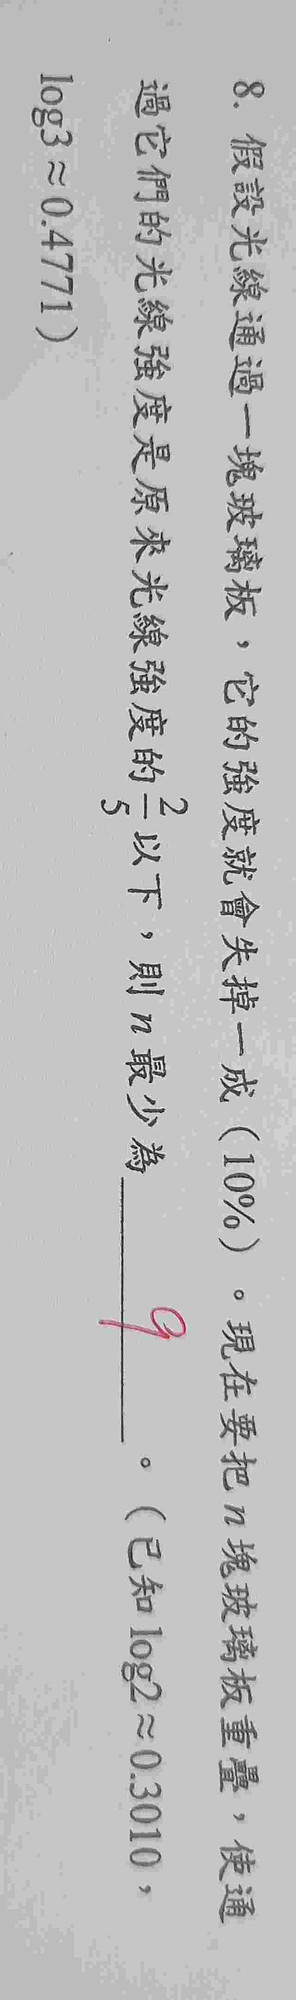 8. 假設光線通過一塊玻璃板，它的強度就會失掉一成（10%）。現在要把 n 塊玻璃板重疊，使通
過它們的光線強度是原來光線強度的 2/5 以下，則 n 最少為 ______9______ 。（已知 log2≈0.3010，
log3≈0.4771）